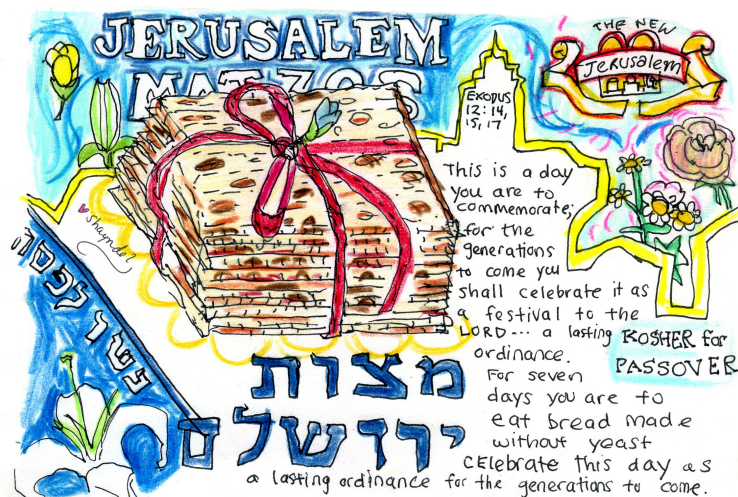 JERUSALEM
MATZOS
THE NEW
Jerusalem
EXODUS
12:14,
15, 17
This is a day
you are to
commemorate;
for the
generations
to come you
shall celebrate it as
a festival to the
LORD... a lasting
ordinance.
For seven
days you are to
eat bread made
without yeast
CElebrate This day as
a lasting ordinance for the generations to come.
KOSHER for
PASSOVER
כשר לפסח
מצות
ירושלים